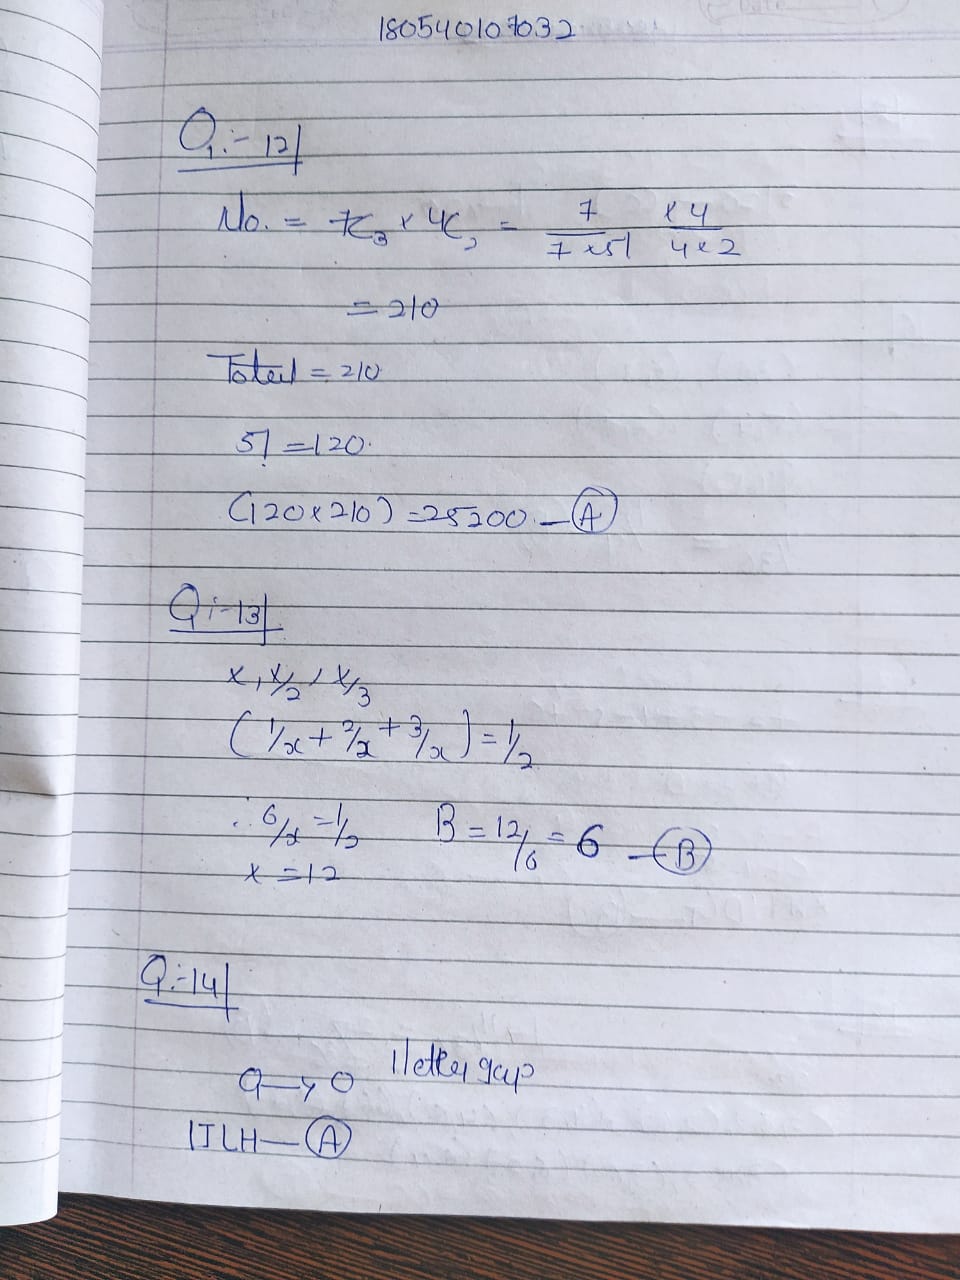 180540107032
Q:-12
No. = 7C3 x 4C2 = 7 / 7x5! x4 / 4x2
= 210
Total = 210
5! = 120.
(120x210) = 25200 - A
Q:-13
x, x/2, x/3
(1/x + 2/x + 3/x) = 1/2
∴ 6/x = 1/2 B = 12/6 = 6 - B
x = 12
Q:-14
1 letter gap
Q → O
IJLH - A